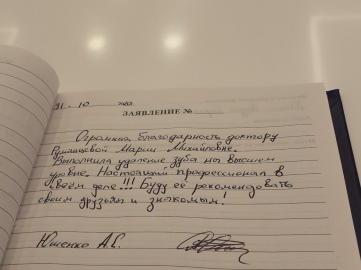 31.10
ЗАЯВЛЕНИЕ №
Огромная благодарность доктору
Румянцевой Марии Михайловне.
Выполнила удаление зуба на высшем
уровне. Настоящий профессионал в
своём деле!!! Буду её рекомендовать
своим друзьям и знакомым!
Ющенко А.С.